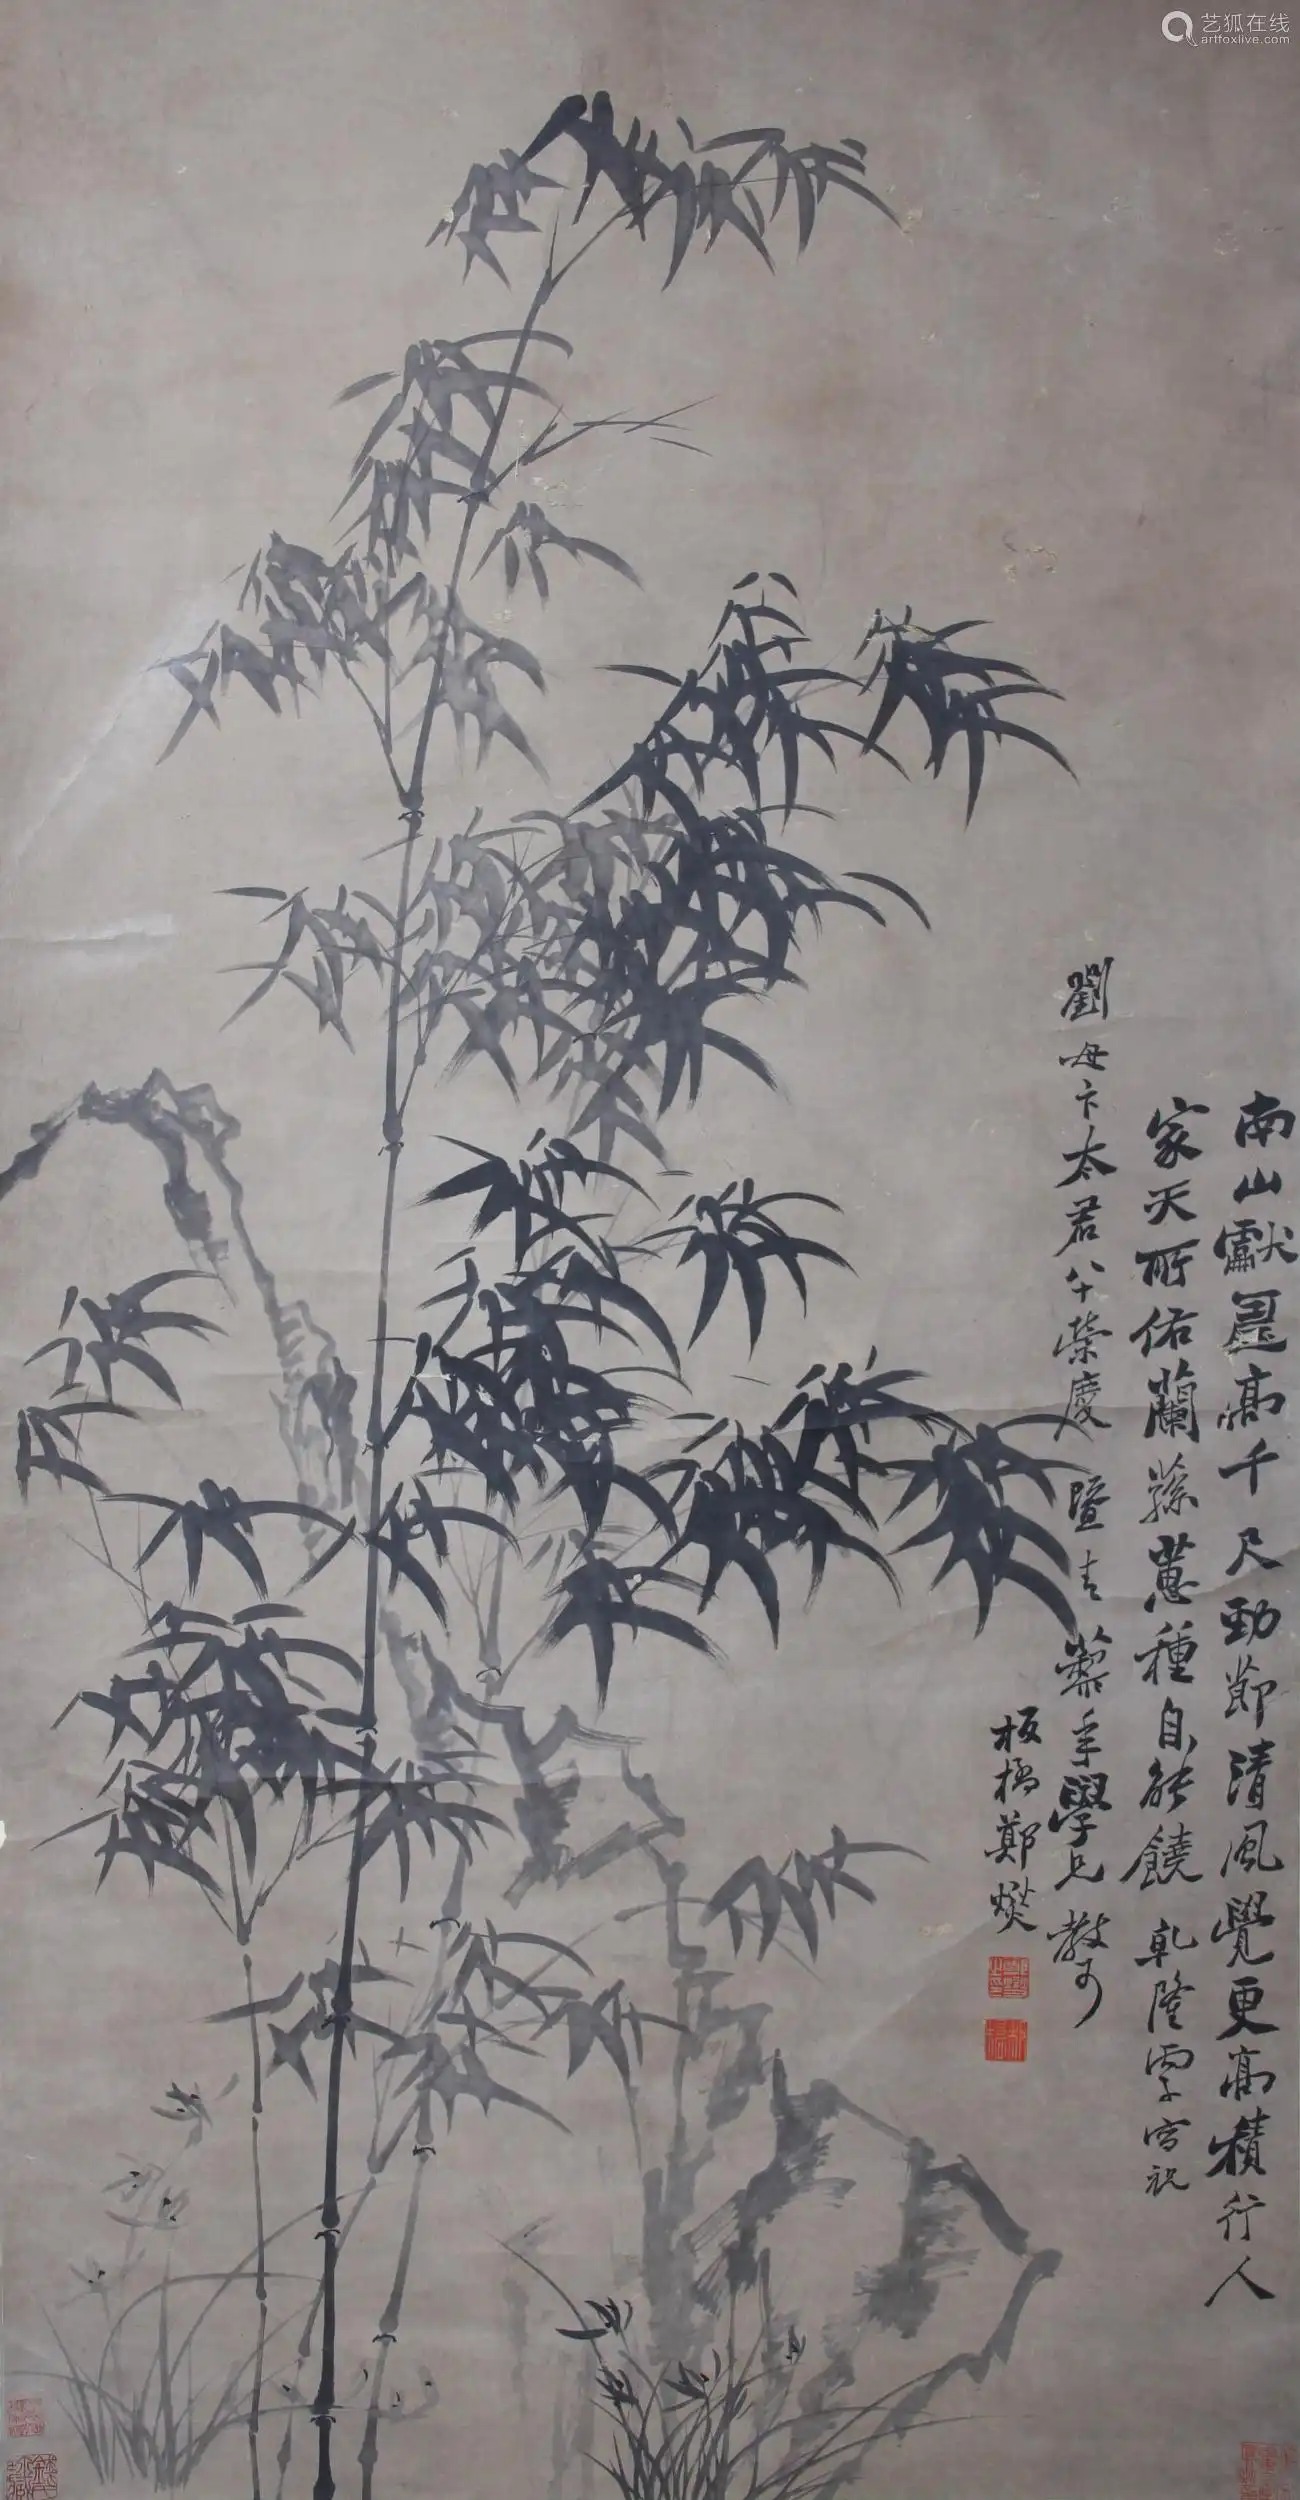 艺狐在线
artfoxlive.com
南山獻壽高千尺勁節清風覺更高積行人
家天所佑蘭蓀蕙種自能饒 乾隆 寫祝
劉母卞太君八十榮慶 暨青藜年學兄教可
板橋鄭燮